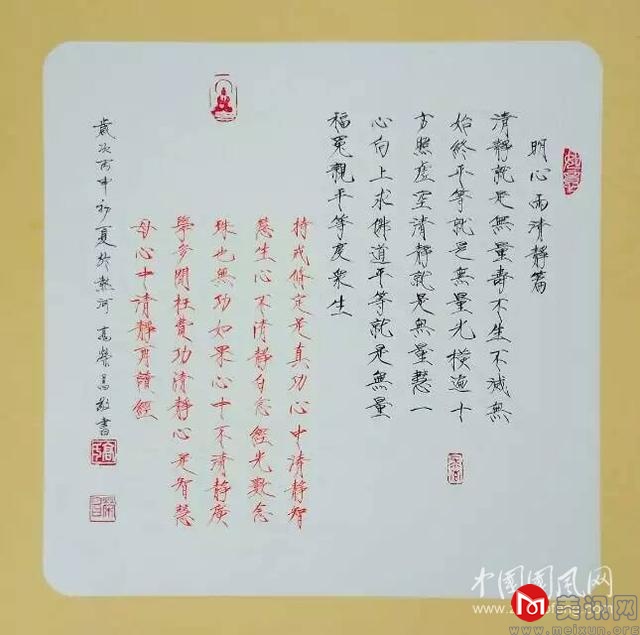 明心雨清靜篇
清靜就是無量壽不生不滅無
始終平等就是無量光橫遍十
方照虛空清靜就是無量慧一
心向上求佛道平等就是無量
福冤親平等度衆生
持戒修定是真功心中清靜智
慧生心不清靜白念經光數念
珠也無功如果心中不清靜廣
學多聞枉費功清靜心是智慧
母心中清靜再讀經
歲次丙申初夏於熱河高榮昌敬書
中国国风网
美讯网
www.meixun.org